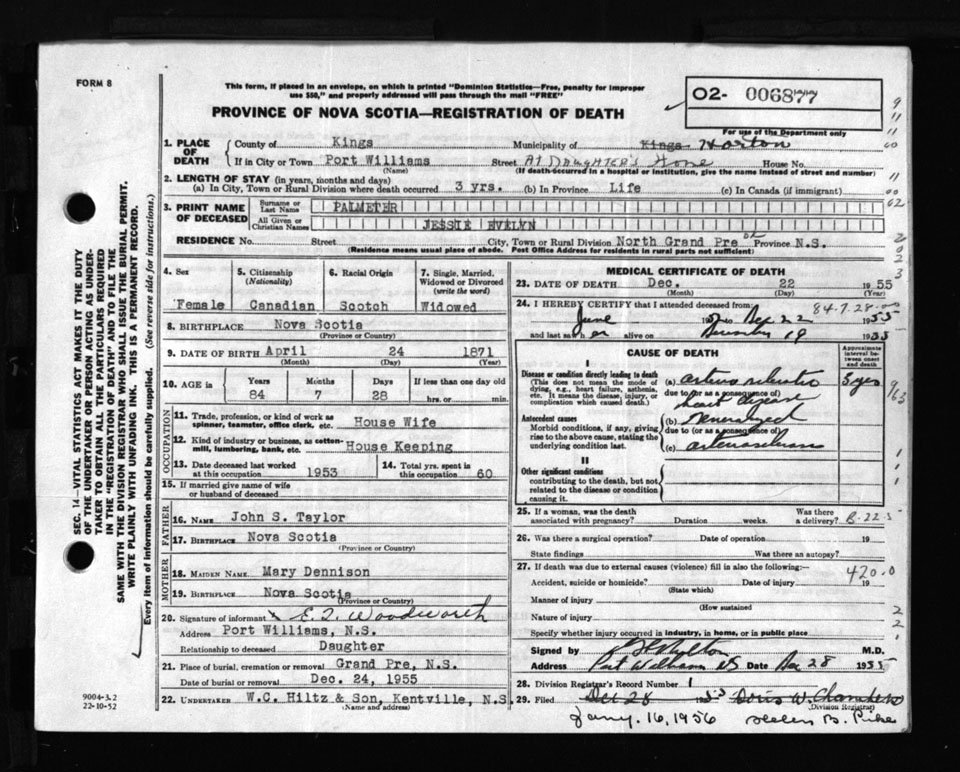 FORM 8
This form, if placed in an envelope, on which is printed "Dominion Statistics—Free, penalty for improper
use $50," and properly addressed will pass through the mail "FREE"
O2- 006877
For use of the Department only
PROVINCE OF NOVA SCOTIA—REGISTRATION OF DEATH
1. PLACE OF DEATH
County of Kings Municipality of Kings Horton
If in City or Town Port Williams Street At Daughter's Home House No.
(Name) (If death occurred in a hospital or institution, give the name instead of street and number)
2. LENGTH OF STAY (in years, months and days)
(a) In City, Town or Rural Division where death occurred 3 yrs. (b) In Province Life (c) In Canada (if immigrant)
3. PRINT NAME OF DECEASED
Surname or Last Name PALMETER
All Given or Christian Names JESSIE EVELYN
RESIDENCE No. Street City, Town or Rural Division North Grand Pre Province N.S.
(Residence means usual place of abode. Post Office Address for residents in rural parts not sufficient)
4. Sex
Female
5. Citizenship
(Nationality)
Canadian
6. Racial Origin
Scotch
7. Single, Married, Widowed or Divorced
(write the word)
Widowed
8. BIRTHPLACE Nova Scotia
(Province or Country)
9. DATE OF BIRTH April 24 1871
(Month) (Day) (Year)
10. AGE in Years Months Days If less than one day old
84 7 28 hrs. or min.
OCCUPATION
11. Trade, profession, or kind of work as
spinner, teamster, office clerk, etc. House Wife
12. Kind of industry or business, as cotton-
mill, lumbering, bank, etc. House Keeping
13. Date deceased last worked
at this occupation 1953
14. Total yrs. spent in
this occupation 60
15. If married give name of wife
or husband of deceased
FATHER
16. NAME John S. Taylor
17. BIRTHPLACE Nova Scotia
(Province or Country)
MOTHER
18. MAIDEN NAME Mary Dennison
19. BIRTHPLACE Nova Scotia
(Province or Country)
20. Signature of informant x E. I. Woodworth
Address Port Williams, N.S.
Relationship to deceased Daughter
21. Place of burial, cremation or removal Grand Pre, N.S.
Date of burial or removal Dec. 24, 1955
22. UNDERTAKER W.C. Hiltz & Son, Kentville, N.S.
(Name and address)
MEDICAL CERTIFICATE OF DEATH
23. DATE OF DEATH Dec. 22 1955
(Month) (Day) (Year)
24. I HEREBY CERTIFY that I attended deceased from: 84-7-28
June to Dec 22 1955
and last saw her alive on December 19 1955
CAUSE OF DEATH
Approximate interval be-
tween onset and death
I
Disease or condition directly leading to death
(This does not mean the mode of
dying, e.g., heart failure, asthenia,
etc. It means the disease, injury, or
complication which caused death.)
(a) arteriosclerotic 5 yrs
due to (or as a consequence of)
heart disease
Antecedent causes
Morbid conditions, if any, giving
rise to the above cause, stating the
underlying condition last.
(b) Generalized
due to (or as a consequence of)
(c) arteriosclerosis
II
Other significant conditions
contributing to the death, but not
related to the disease or condition
causing it.
25. If a woman, was the death
associated with pregnancy? Duration weeks. Was there
a delivery?
26. Was there a surgical operation? Date of operation 19
State findings Was there an autopsy?
27. If death was due to external causes (violence) fill in also the following:— 420.0
Accident, suicide or homicide? Date of injury 19
(State which)
Manner of injury
(How sustained
Nature of injury
Specify whether injury occurred in industry, in home, or in public place
Signed by M.D.
Address Port Williams NS Date Dec 28 1955
28. Division Registrar's Record Number 1
29. Filed Dec 28 Doris W. Chambers
(Division Registrar)
Jany. 16, 1956 Helen B. Pike
SEC. 14—VITAL STATISTICS ACT MAKES IT THE DUTY
OF THE UNDERTAKER OR PERSON ACTING AS UNDER-
TAKER TO OBTAIN ALL THE PARTICULARS REQUIRED
IN THE "REGISTRATION OF DEATH" AND TO FILE THE
SAME WITH THE DIVISION REGISTRAR WHO SHALL ISSUE THE BURIAL PERMIT.
WRITE PLAINLY WITH UNFADING INK. THIS IS A PERMANENT RECORD.
Every item of information should be carefully supplied. (See reverse side for instructions.)
9004-3.2
22-10-52